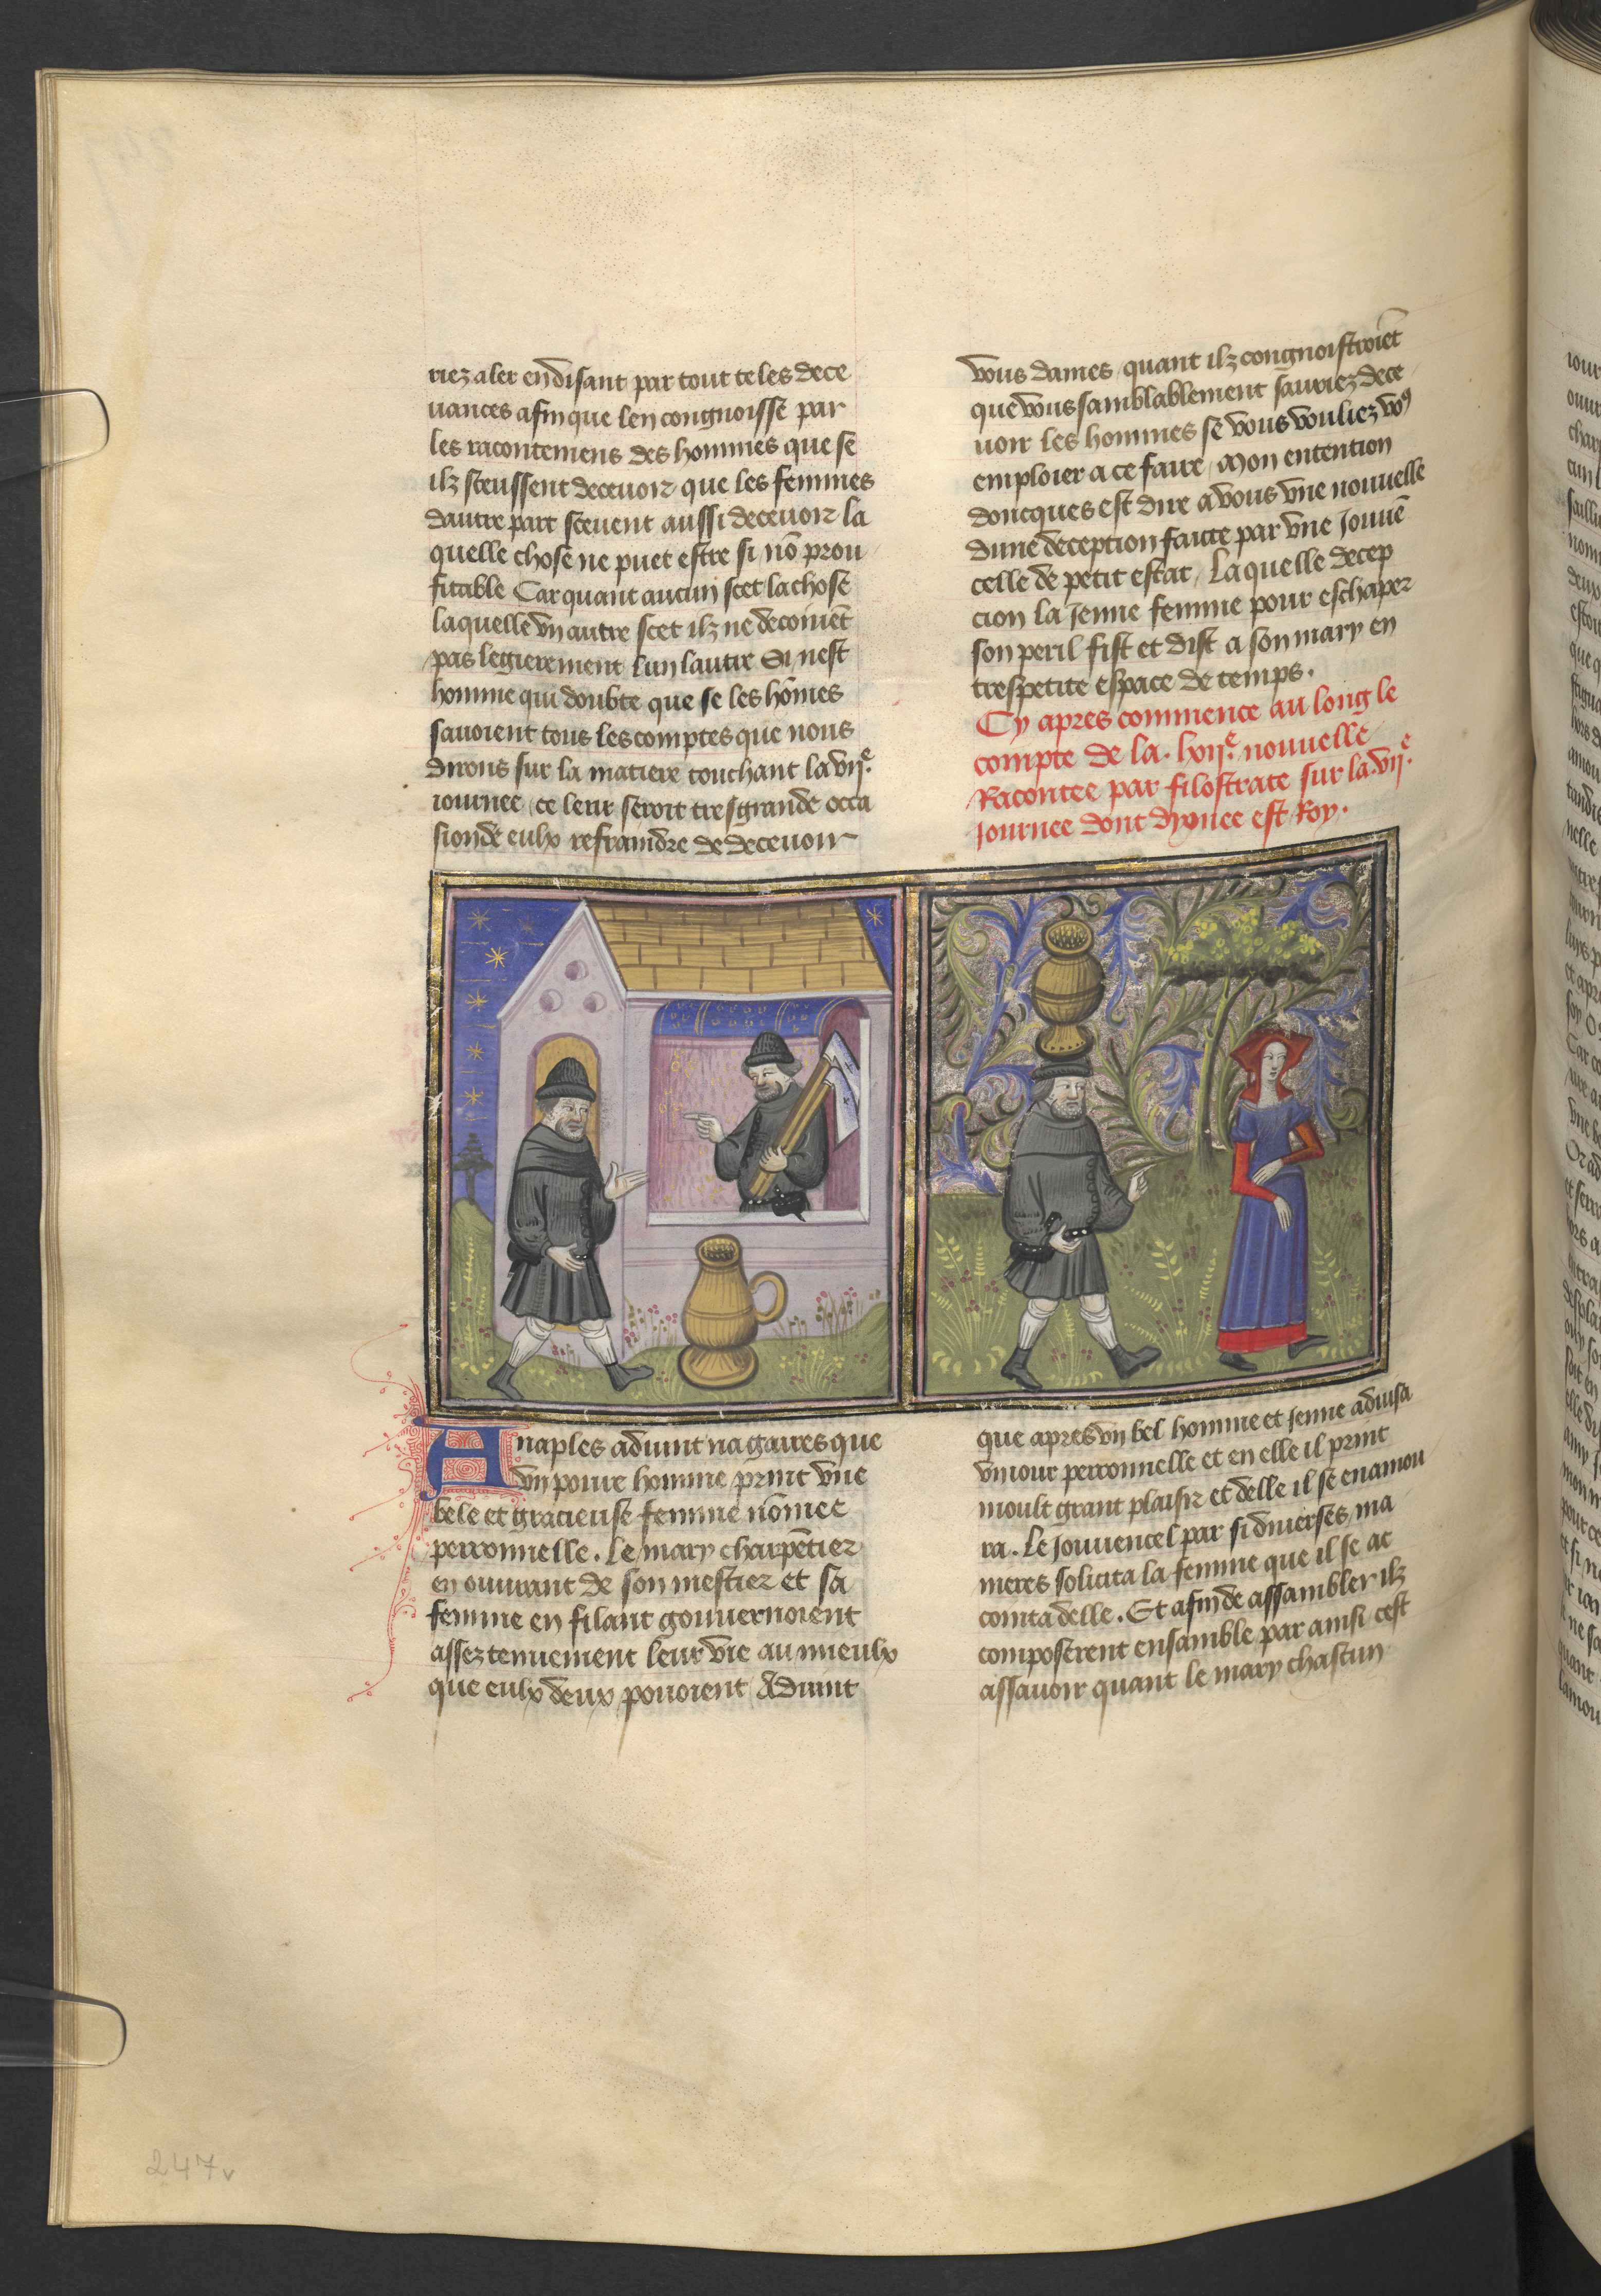 riez aler en disant par tout teles dece
uances afin que len congnoisse par
les racontemens des hommes que se
ilz sceussent deceuoir que les femmes
dautre part sceuent aussi deceuoir la
quelle chose ne puet estre si nō prou
fitable Car quant aucun scet la chose
laquelle vn autre scet ilz ne decoiuēt
pas legierement lun lautre Si nest
homme qui doubte que se les hōmes
sauoient tous les comptes que nous
dirons sur la matiere touchant la vije.
iournee ce leur seroit tresgrande occa
sion de eulx refraindre de deceuoir
vous dames quant ilz congnoistroiēt
que vous samblablement sauriez dece
uoir les hommes se vous vouliez vo9
emploier a ce faire Mon entention
doncques est dire a vous vne nouuelle
dune deception faicte par vne Jouuē
celle de petit estat Laquelle decep
cion la Jenne femme pour eschaper
son peril fist et dist a son mary en
trespetite espace de temps.
Cy apres commence au long le
compte de la. lxije. nouuelle
Racontee par filostrate sur la. vije.
Journee dont dyonee est Roy.
A naples aduint na gaires que
vn poure homme print vne
bele et gracieuse femme nōmee
perronnelle. Le mary charpētier
en ouurant de son mestier et sa
femme en filant gouuernoient
assez tenuement leur vie au mieulx
que eulx deux pouoient Aduint
que apres vn bel homme et Jenne aduisa
vn iour perronnelle et en elle il print
moult grant plaisir et delle il se enamou
ra. Le Jouuencel par si diuerses ma
nieres solicita la femme que il se ac
cointa delle. Et afin de assambler ilz
composerent ensamble par ainsi cest
assauoir quant le mary chascun
247v